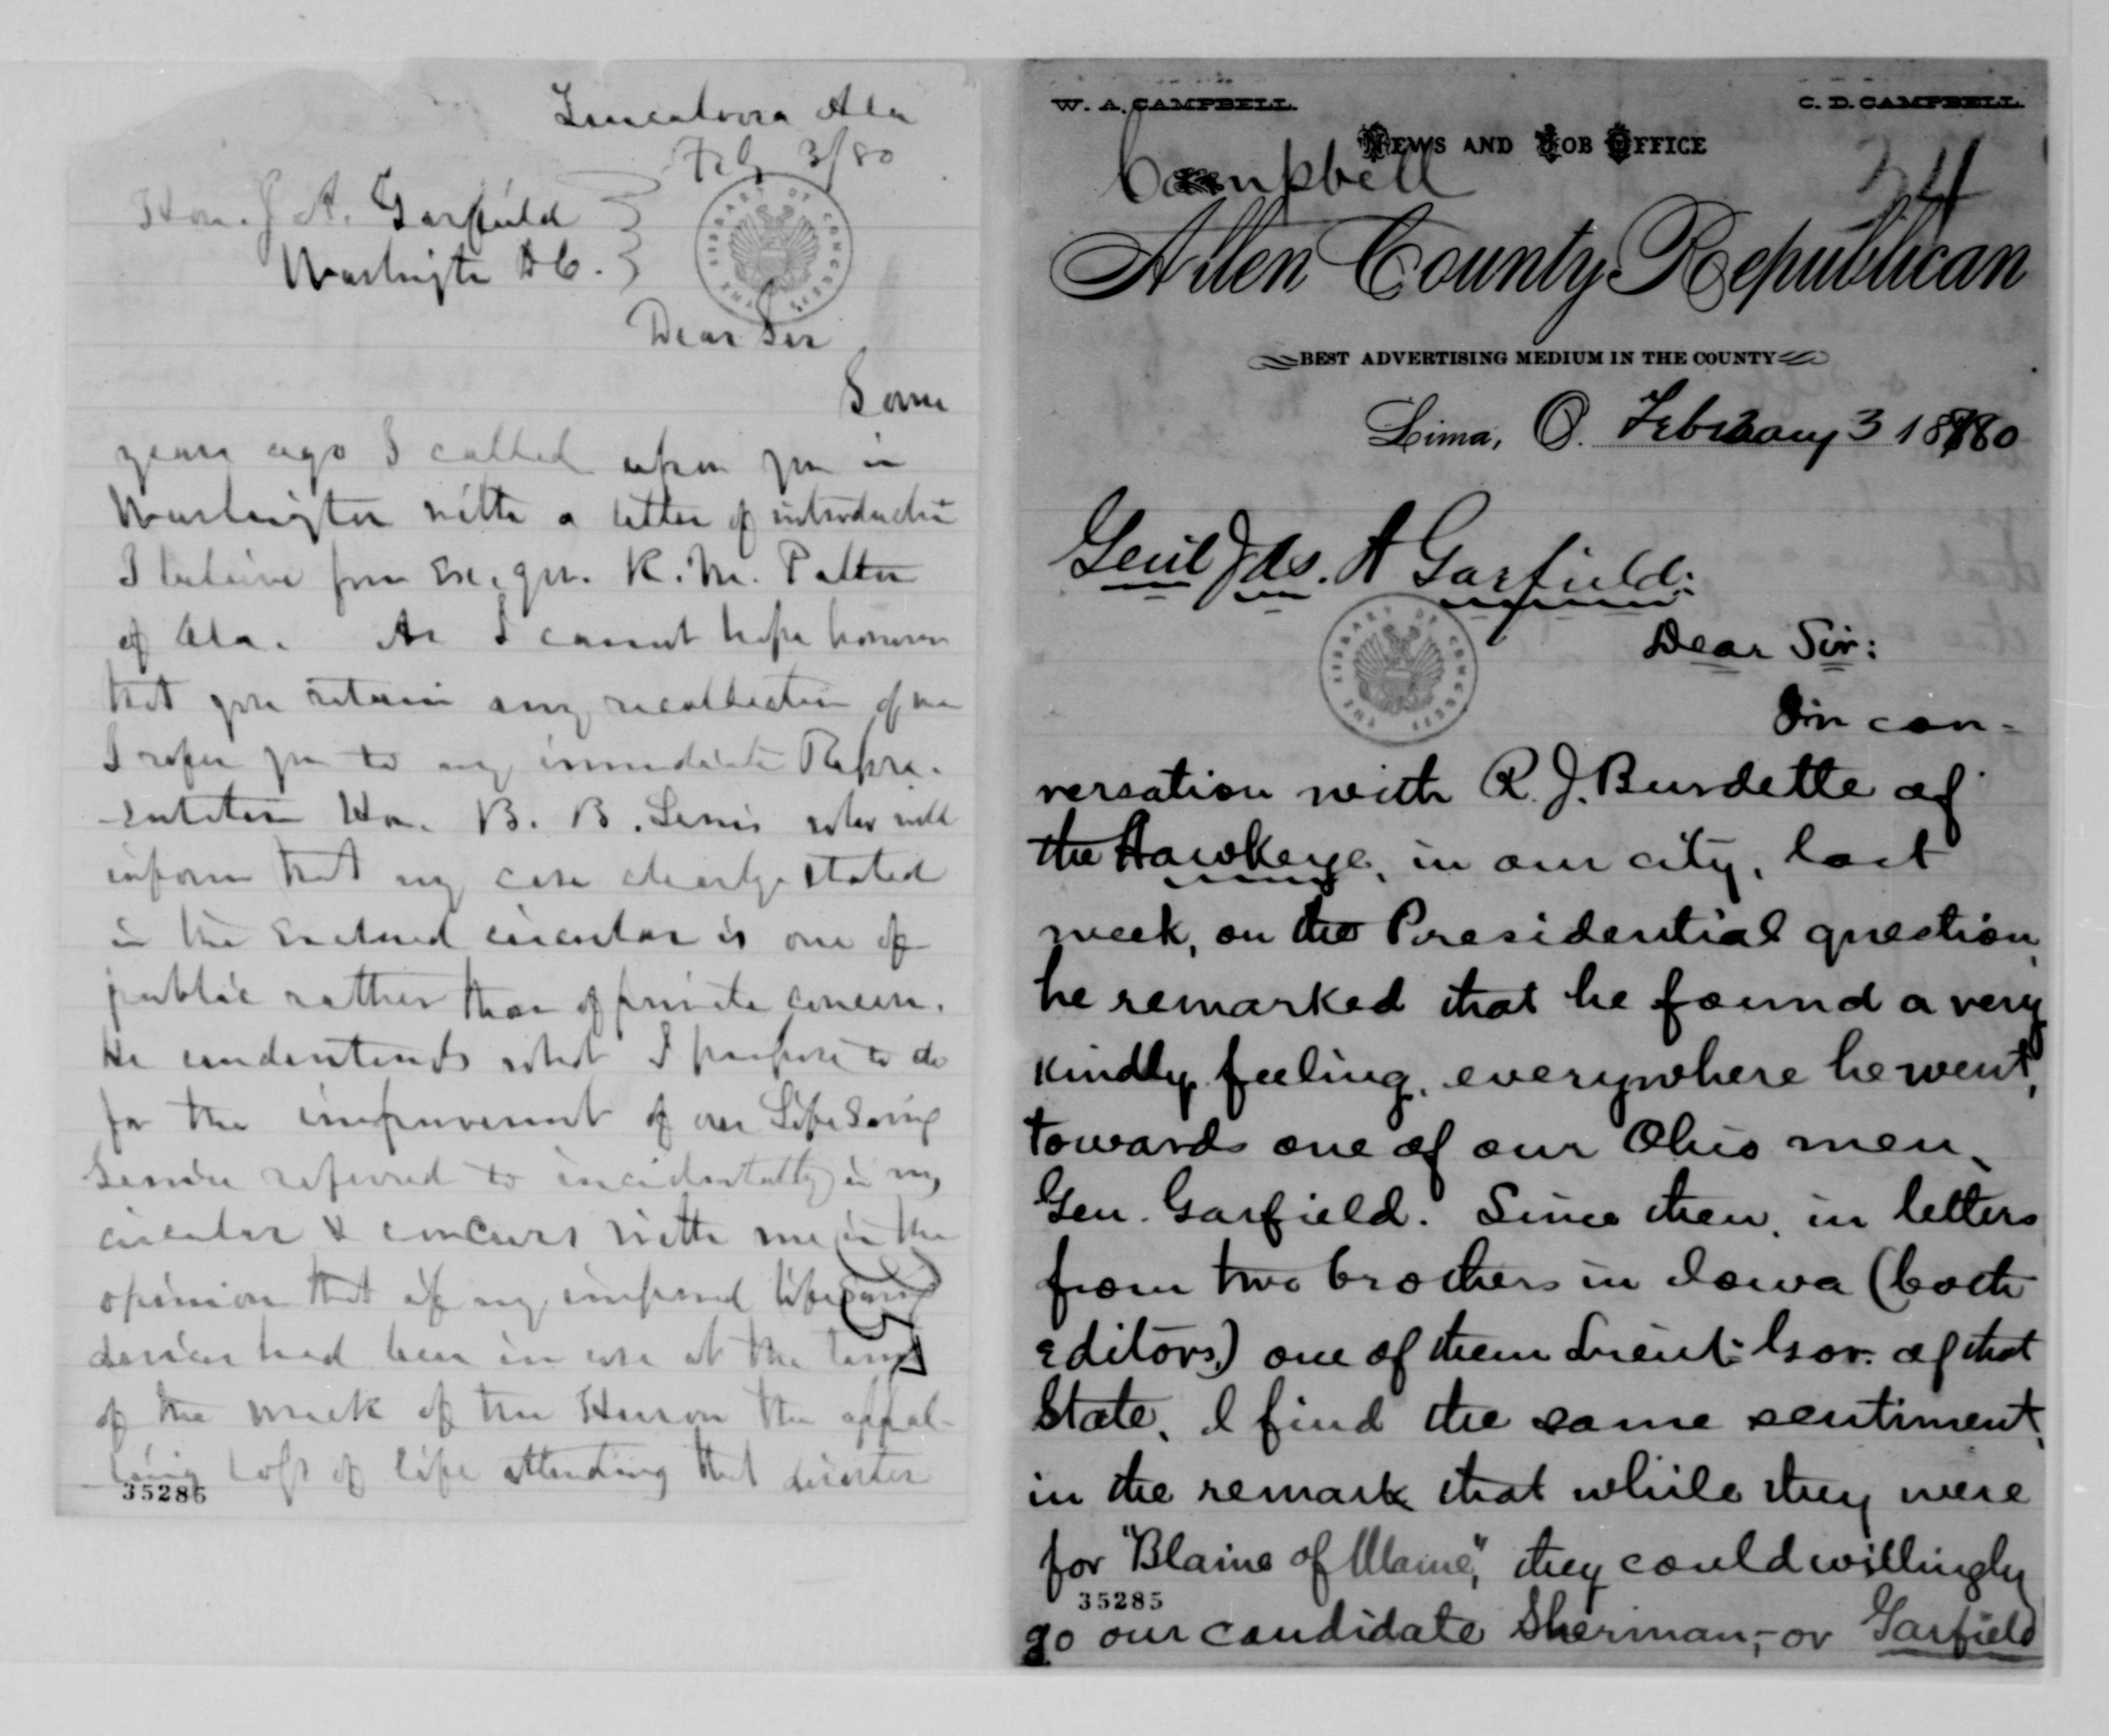 Tuscaloosa Ala
Feb 3/80
Hon. J. A. Garfield
Washingtn D.C.
THE LIBRARY OF CONGRESS
Dear Sir
Some
years ago I called upon you in
Washington with a letter of introductin
I believe from Ex. gov. R. M. Patton
of Ala. As I cannot hope however
that you retain any recollection of me
I refer you to my immediate Repre-
sentative Hon. B. B. Lewis who will
inform that my case clearly stated
in the enclosed circular is one of
public rather than of private concern.
He understands what I propose to do
for the improvement of our Life Saving
Service referred to incidentally in my
circular & concurs with me in the
opinion that if my improved life saving
devices had been in use at the time
of the wreck of the Huron the appal-
ling loss of life attending that disaster
57
35286
W. A. CAMPBELL.
C. D. CAMPBELL.
NEWS AND JOB OFFICE
Campbell
34
Allen County Republican
BEST ADVERTISING MEDIUM IN THE COUNTY
Lima, O. February 3 1880
Genl Jas. A Garfield:
THE LIBRARY OF CONGRESS
Dear Sir:
In con-
versation with R. J. Burdette of
the Hawkeye, in our city, last
week, on the Presidential question,
he remarked that he found a very
kindly feeling, everywhere he went,
towards one of our Ohio men,
Gen. Garfield. Since then, in letters
from two brothers in Iowa (both
editors,) one of them Lieut. Gov. of that
State, I find the same sentiment,
in the remark that while they were
for "Blaine of Maine," they could willingly
35285
go our candidate Sherman,- or Garfield